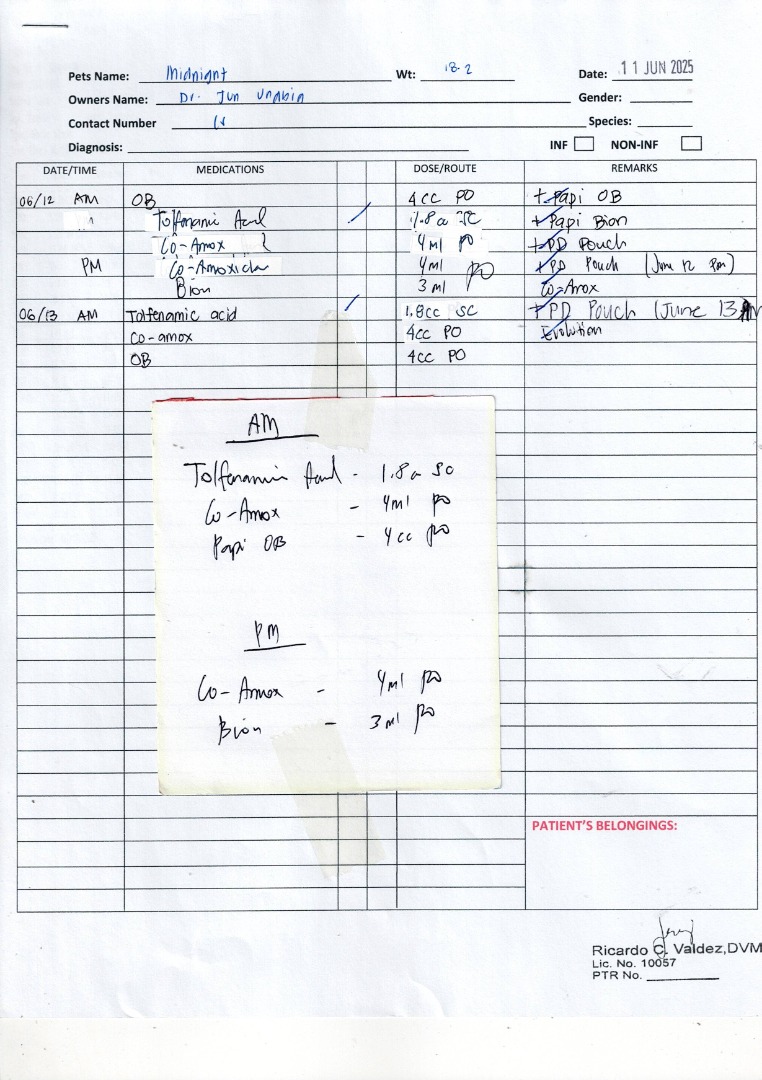 Pets Name: Midnight Wt: 18.2 Date: 11 JUN 2025
Owners Name: Dr. Jun Gender:
Contact Number Species:
Diagnosis: INF NON-INF
DATE/TIME MEDICATIONS DOSE/ROUTE REMARKS
06/12 AM OB 4cc PO + Papi OB
Tolfenamic Acid 1.8cc SC + Papi Bion
Co-Amox 4ml PO + PD Pouch
PM Co-Amoxiclav 4ml PO + PD Pouch (June 12 PM)
Bion 3ml Co-Amox
06/13 AM Tolfenamic acid 1.8cc SC + PD Pouch (June 13
Co-amox 4cc PO Evolution
OB 4cc PO
AM
Tolfenamic Acid - 1.8cc SC
Co-Amox - 4ml PO
Papi OB - 4cc PO
PM
Co-Amox - 4ml PO
Bion - 3ml PO
PATIENT'S BELONGINGS:
Ricardo C. Valdez,DVM
Lic. No. 10057
PTR No.